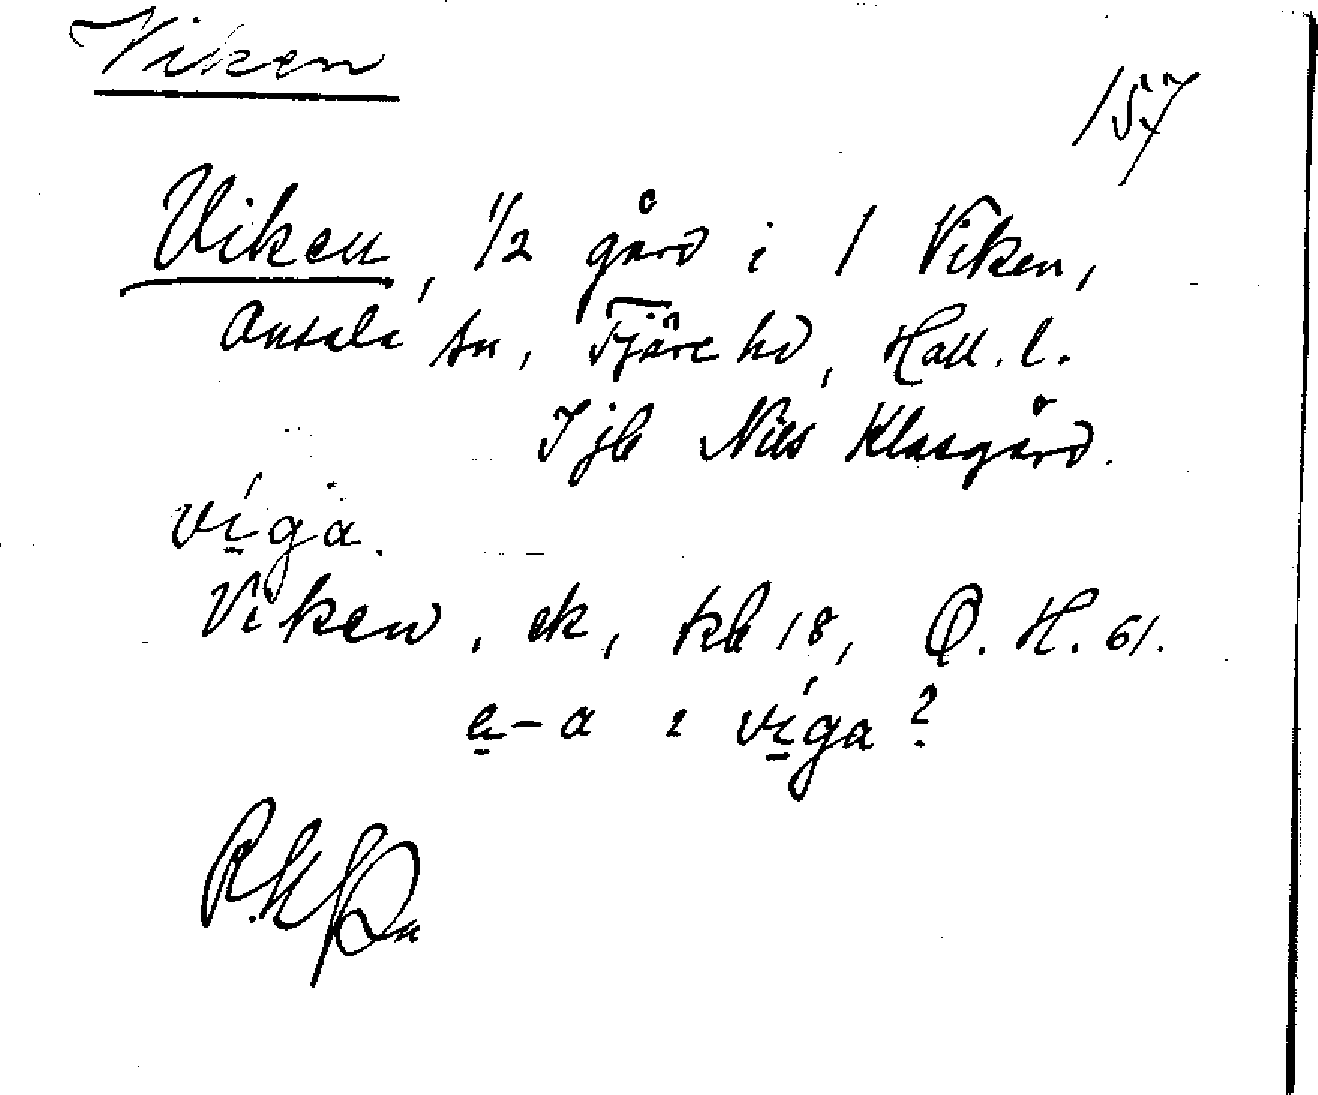 Viken
157
Viken, 1/2 gård i 1 Viken,
Onsala sn, Fjäre hd, Hall. l.
Ijb Nils Klasgård.
víga.
Viken, ek, kb 18, O. H. 61.
e-a i víga?